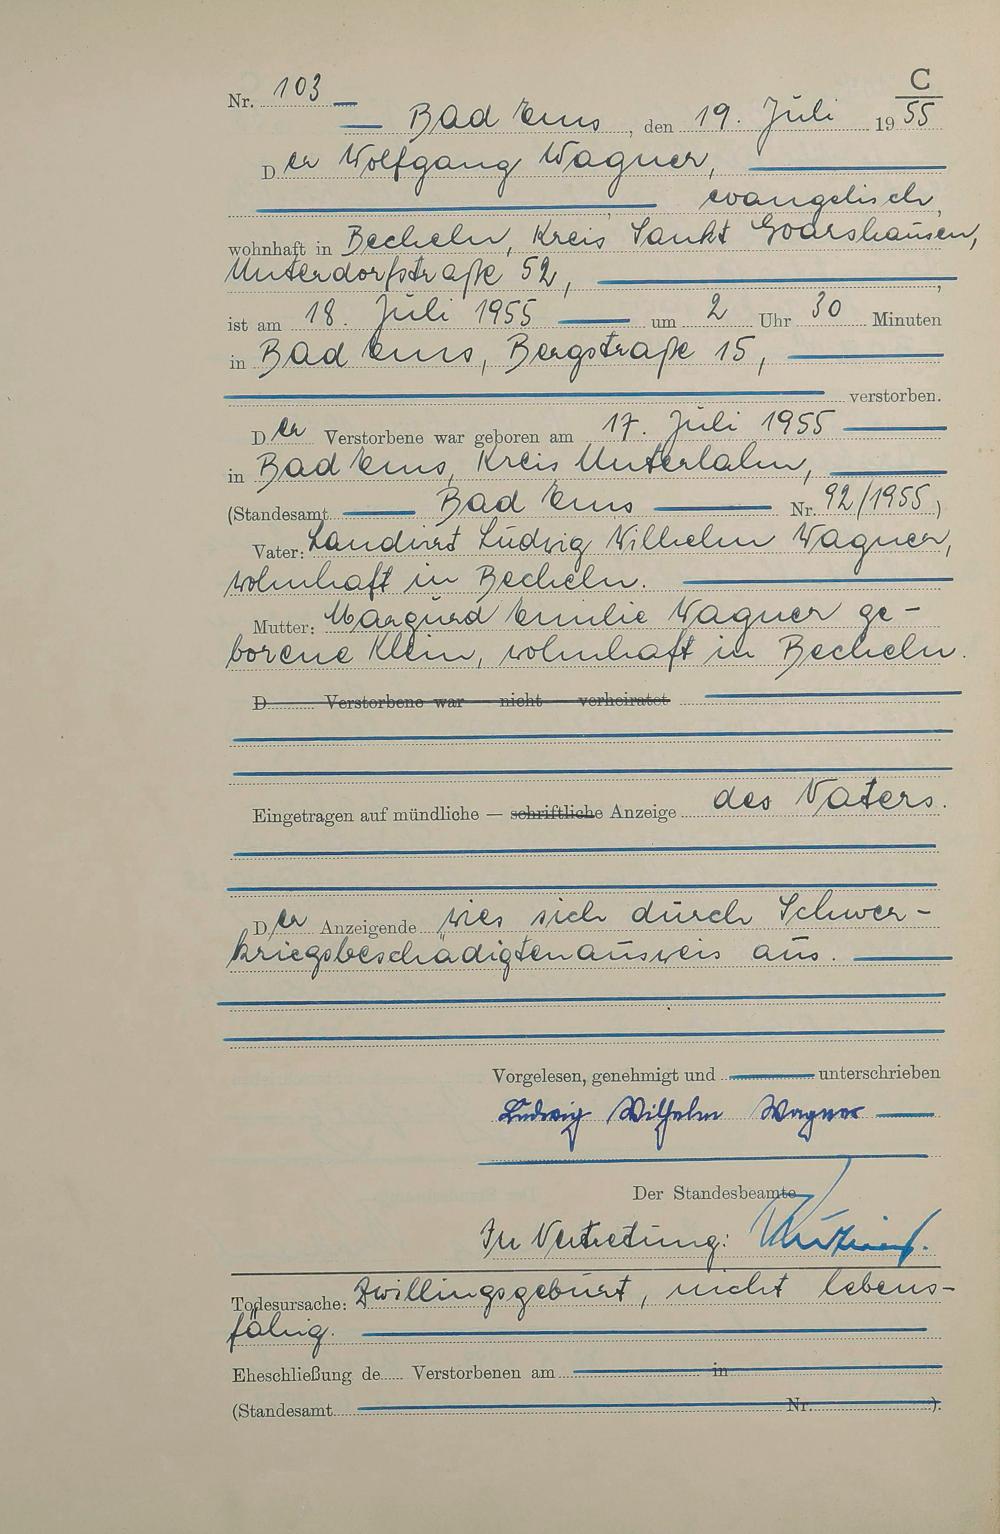 C
Nr. 103
Bad Ems, den 19. Juli 1955
Der Wolfgang Wagner,
evangelisch,
wohnhaft in Becheln, Kreis Sankt Goarshausen,
Unterdorfstraße 52,
ist am 18. Juli 1955 um 2 Uhr 30 Minuten
in Bad Ems, Bergstraße 15,
verstorben.
Der Verstorbene war geboren am 17. Juli 1955
in Bad Ems, Kreis Unterlahn,
(Standesamt Bad Ems Nr. 92/1955)
Vater: Landwirt Ludwig Wilhelm Wagner,
wohnhaft in Becheln.
Mutter: Emilie Wagner ge-
borene Klein, wohnhaft in Becheln.
D Verstorbene war nicht verheiratet
Eingetragen auf mündliche — schriftliche Anzeige des Vaters.
Der Anzeigende wies sich durch Schwer-
kriegsbeschädigtenausweis aus.
Vorgelesen, genehmigt und unterschrieben
Ludwig Wilhelm Wagner
Der Standesbeamte
In Vertretung:
Todesursache: Zwillingsgeburt, nicht lebens-
fähig.
Eheschließung de Verstorbenen am in
(Standesamt Nr. ).